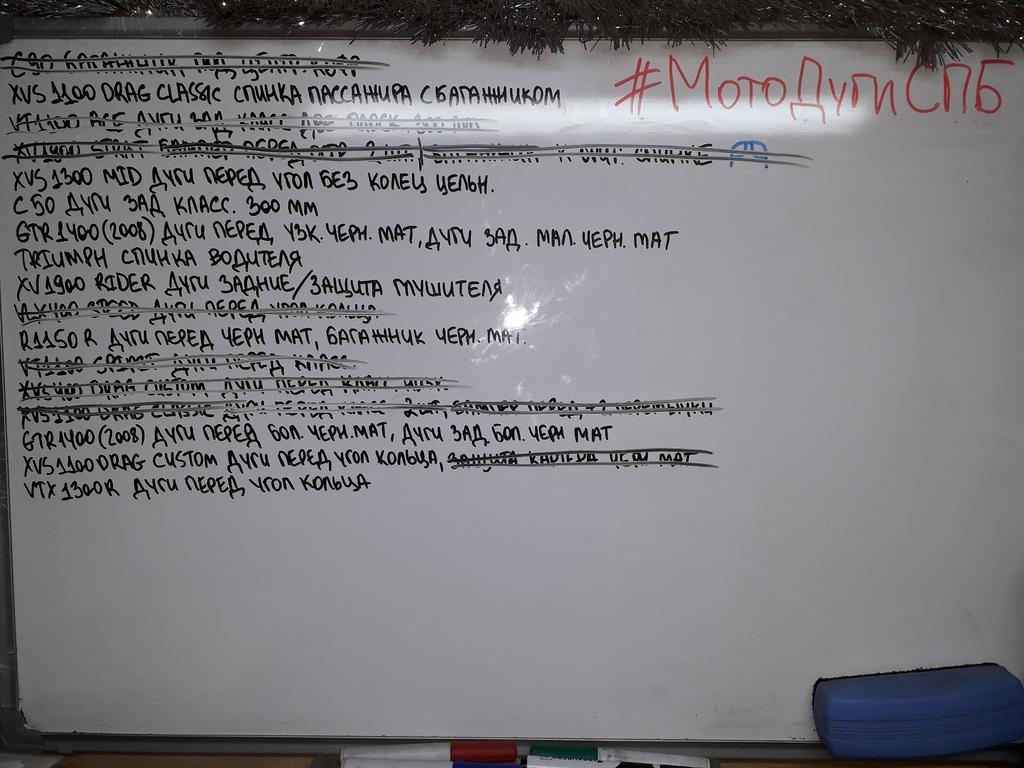 #МотоДугиСПБ
C90 БАГАЖНИК ПОД ЦЕНТ. КОФР
XVS 1100 DRAG CLASSIC СПИНКА ПАССАЖИРА С БАГАЖНИКОМ
VT1100 ACE ДУГИ ЗАД КЛАСС ДОП ПЛОСК 300 мм
XV1900 ПЕРЕД БАГАЖНИК К ОРИГ. СПИНКЕ
XVS 1300 MID ДУГИ ПЕРЕД УГОЛ БЕЗ КОЛЕЦ ЦЕЛЬН.
C 50 ДУГИ ЗАД КЛАСС. 300 мм
GTR 1400 (2008) ДУГИ ПЕРЕД УЗК. ЧЕРН. МАТ, ДУГИ ЗАД. МАЛ. ЧЕРН. МАТ
TRIUMPH СПИНКА ВОДИТЕЛЯ
XV 1900 RIDER ДУГИ ЗАДНИЕ/ЗАЩИТА ГЛУШИТЕЛЯ
VLX400 STEED ДУГИ ПЕРЕД УГОЛ КОЛЬЦА
R1150 R ДУГИ ПЕРЕД ЧЕРН МАТ, БАГАЖНИК ЧЕРН. МАТ.
VT1100 SPIRIT ДУГИ ПЕРЕД КЛАСС
XVS 400 DRAG CUSTOM ДУГИ ПЕРЕД КЛАСС
XVS 1100 DRAG CLASSIC ДУГИ ПЕРЕД КЛАСС
GTR 1400 (2008) ДУГИ ПЕРЕД БОЛ. ЧЕРН. МАТ, ДУГИ ЗАД БОЛ. ЧЕРН МАТ
XVS 1100 DRAG CUSTOM ДУГИ ПЕРЕД УГОЛ КОЛЬЦА, ЗАЩИТА КАРТЕРА ЧЕРН МАТ
VTX 1300R ДУГИ ПЕРЕД УГОЛ КОЛЬЦА